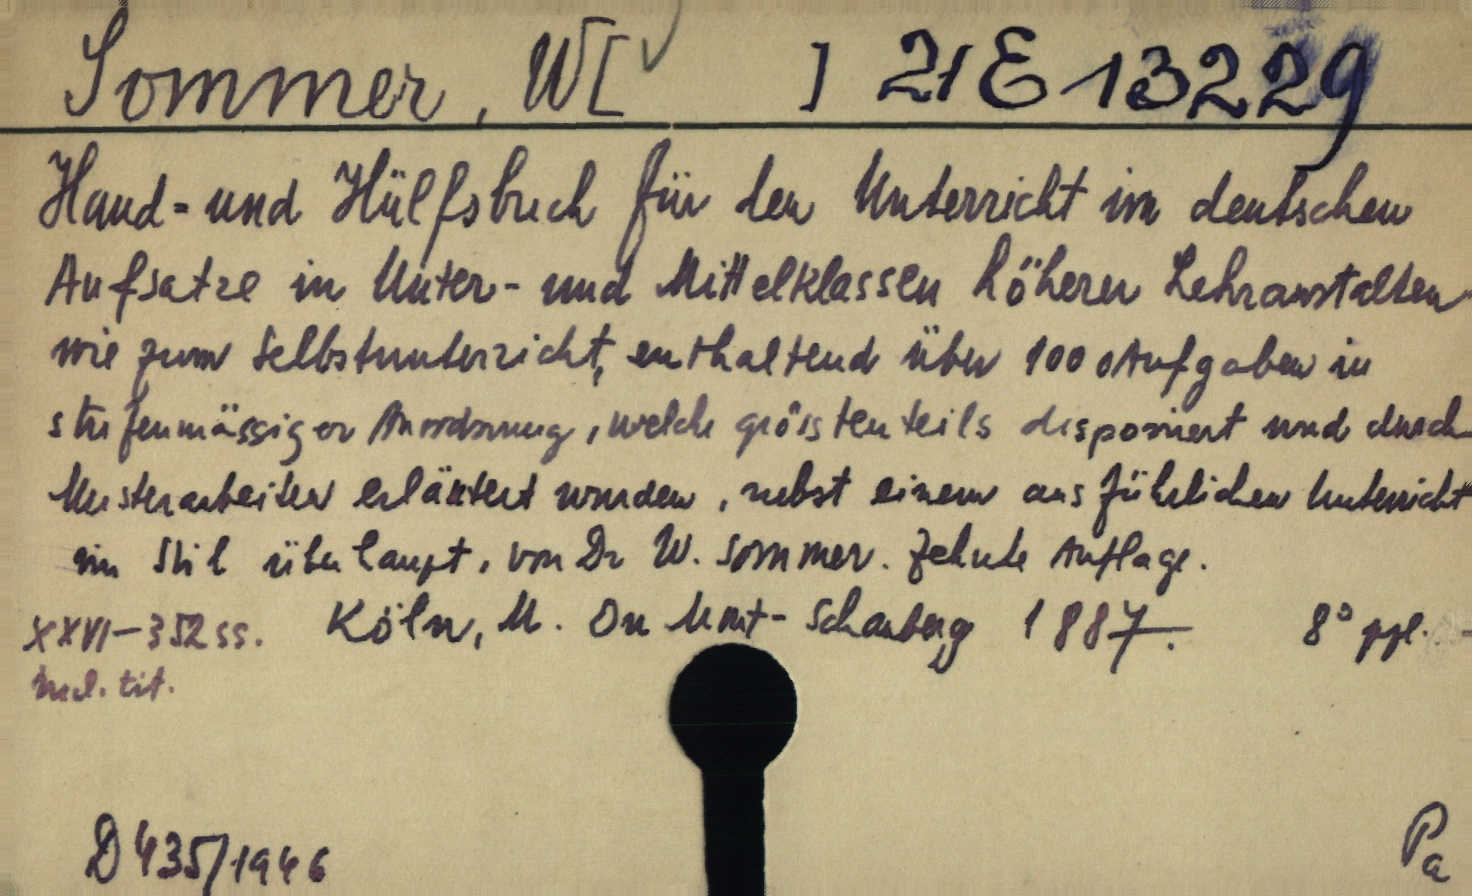 Sommer, W[ ] 21 E 13229
Hand- und Hülfsbuch für den Unterricht im deutschen
Aufsatze in Unter- und Mittelklassen höherer Lehranstalten
wie zum Selbstunterricht, enthaltend über 1000 Aufgaben in
stufenmässiger Anordnung, welche grösstenteils disponiert und durch
Musterarbeiten erläutert wurden, nebst einem ausführlichen Unterricht
im Stil überhaupt, von Dr W. Sommer. Zehnte Auflage.
XXVI-352 ss. Köln, M. Du Mont-Schauberg 1887. 8° ppl.
incl. tit.
D 435/1946
Pa